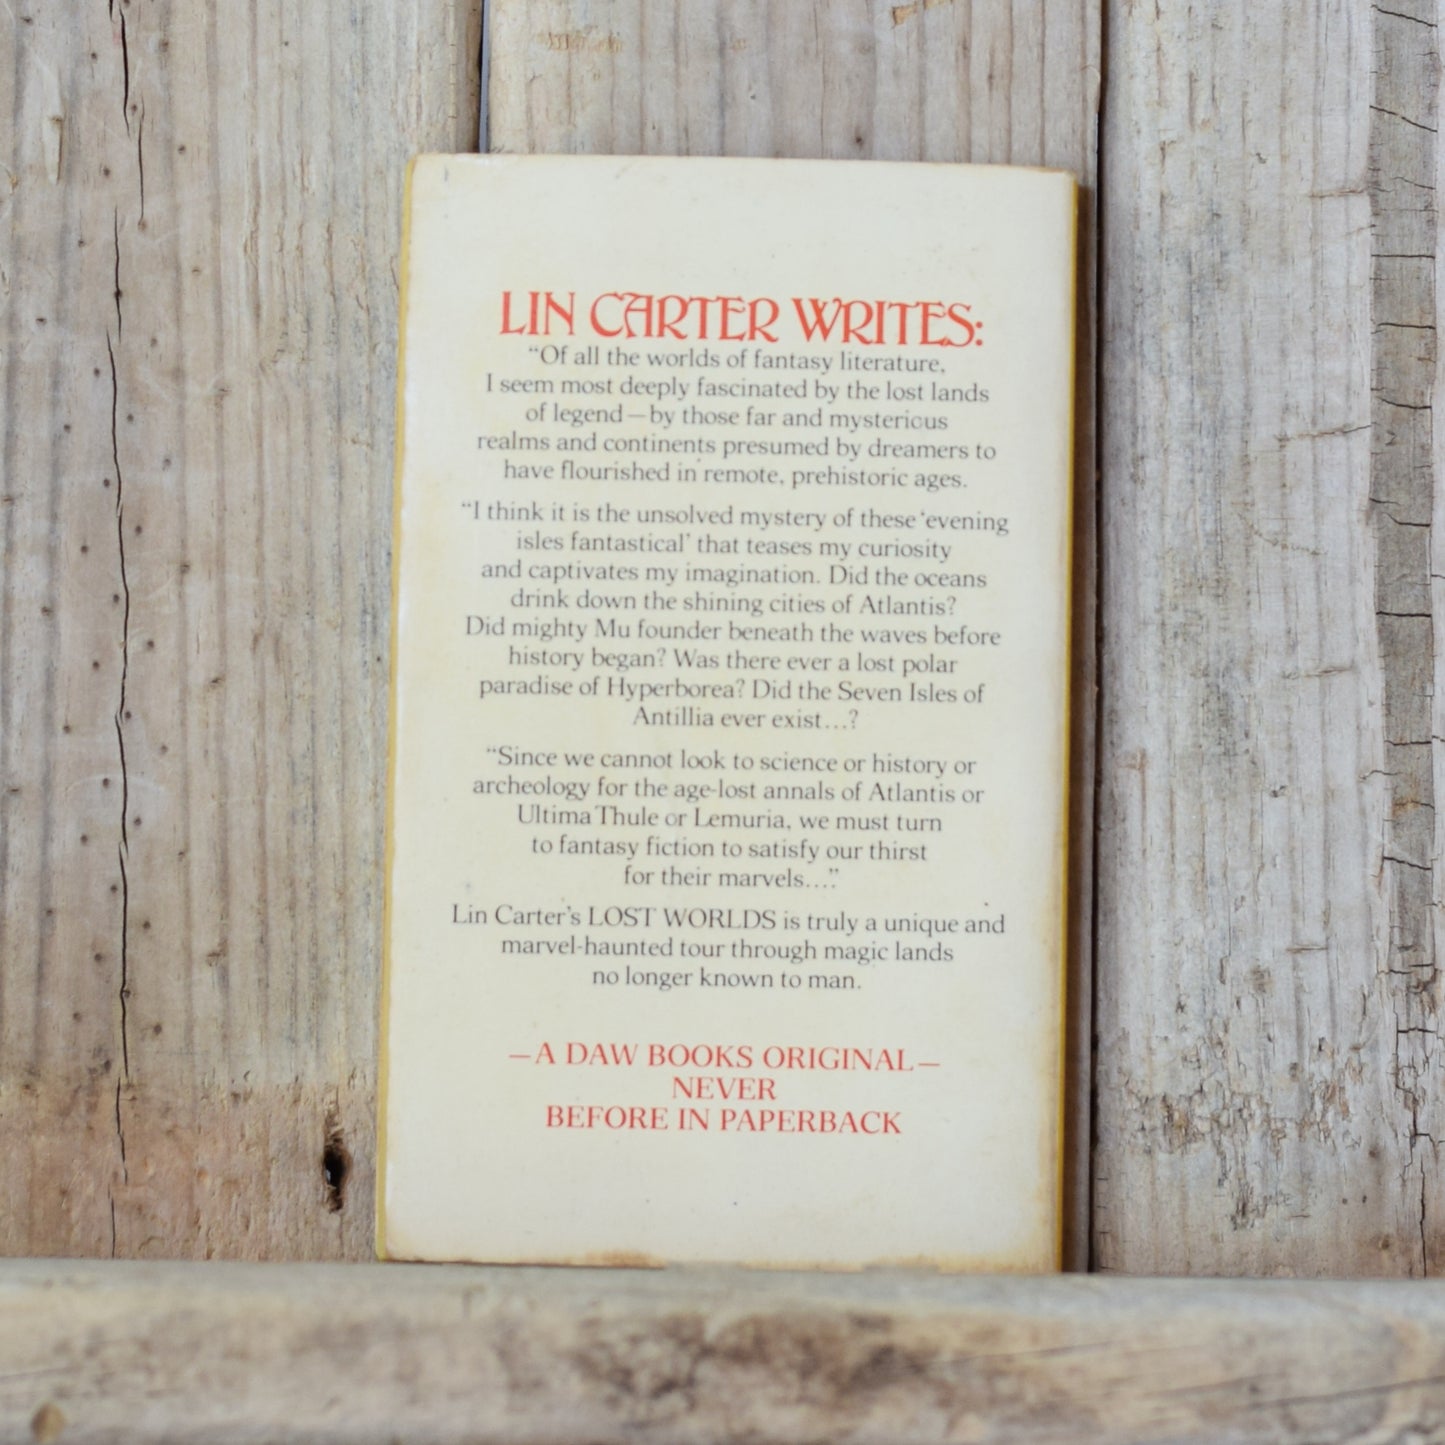 LIN CARTER WRITES:
“Of all the worlds of fantasy literature,
I seem most deeply fascinated by the lost lands
of legend—by those far and mysterious
realms and continents presumed by dreamers to
have flourished in remote, prehistoric ages.
“I think it is the unsolved mystery of these ‘evening
isles fantastical’ that teases my curiosity
and captivates my imagination. Did the oceans
drink down the shining cities of Atlantis?
Did mighty Mu founder beneath the waves before
history began? Was there ever a lost polar
paradise of Hyperborea? Did the Seven Isles of
Antillia ever exist...?
“Since we cannot look to science or history or
archeology for the age-lost annals of Atlantis or
Ultima Thule or Lemuria, we must turn
to fantasy fiction to satisfy our thirst
for their marvels...”
Lin Carter’s LOST WORLDS is truly a unique and
marvel-haunted tour through magic lands
no longer known to man.
—A DAW BOOKS ORIGINAL—
NEVER
BEFORE IN PAPERBACK